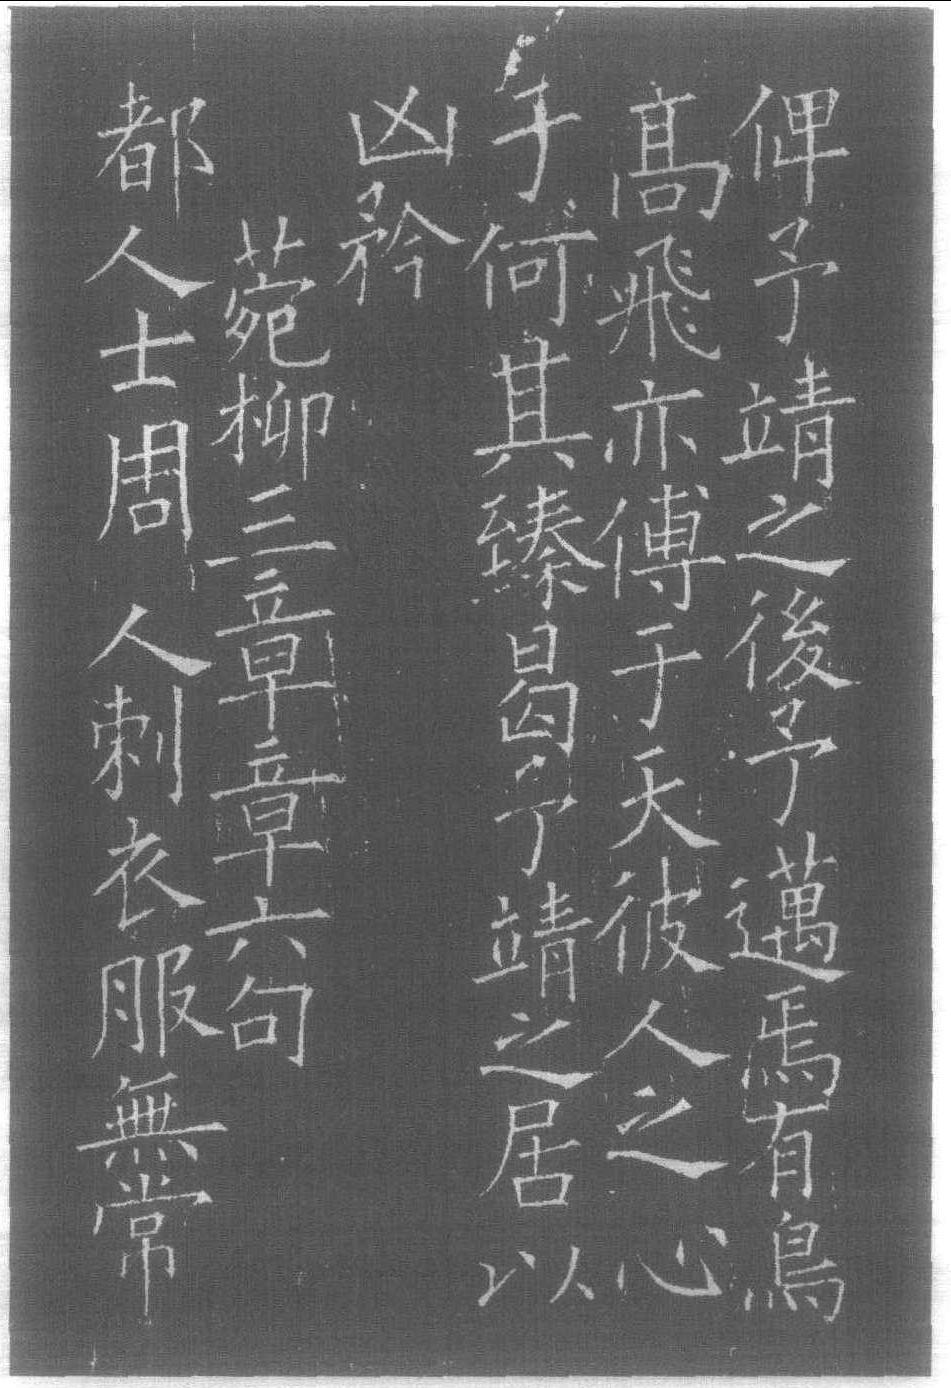 俾予靖之後予邁焉有鳥
高飛亦傅于天彼人之心
于何其臻曷予靖之居以
凶矜
菀柳三章章六句
都人士周人刺衣服無常